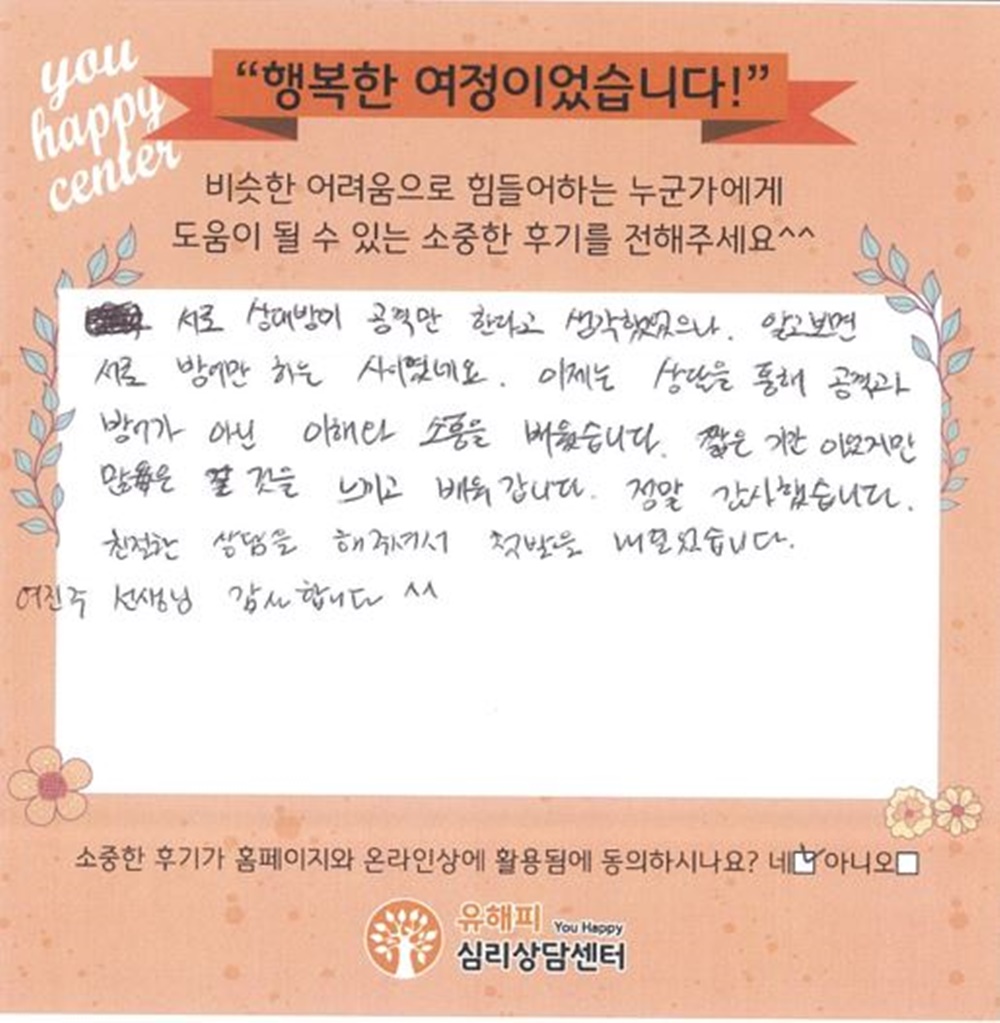 you
happy
center
“행복한 여정이었습니다!”
비슷한 어려움으로 힘들어하는 누군가에게
도움이 될 수 있는 소중한 후기를 전해주세요^^
서로 상대방이 공격만 한다고 생각했었으나. 알고보면
서로 방어만 하는 사이였네요. 이제는 상담을 통해 공격과
방어가 아닌 이해라 소통을 배웠습니다. 짧은 기간 이었지만
많은 것을 느끼고 배워 갑니다. 정말 감사했습니다.
친절한 상담을 해주셔서 첫발을 내딛었습니다.
여진주 선생님 감사합니다 ^^
소중한 후기가 홈페이지와 온라인상에 활용됨에 동의하시나요? 네 아니오
유해피 You Happy
심리상담센터